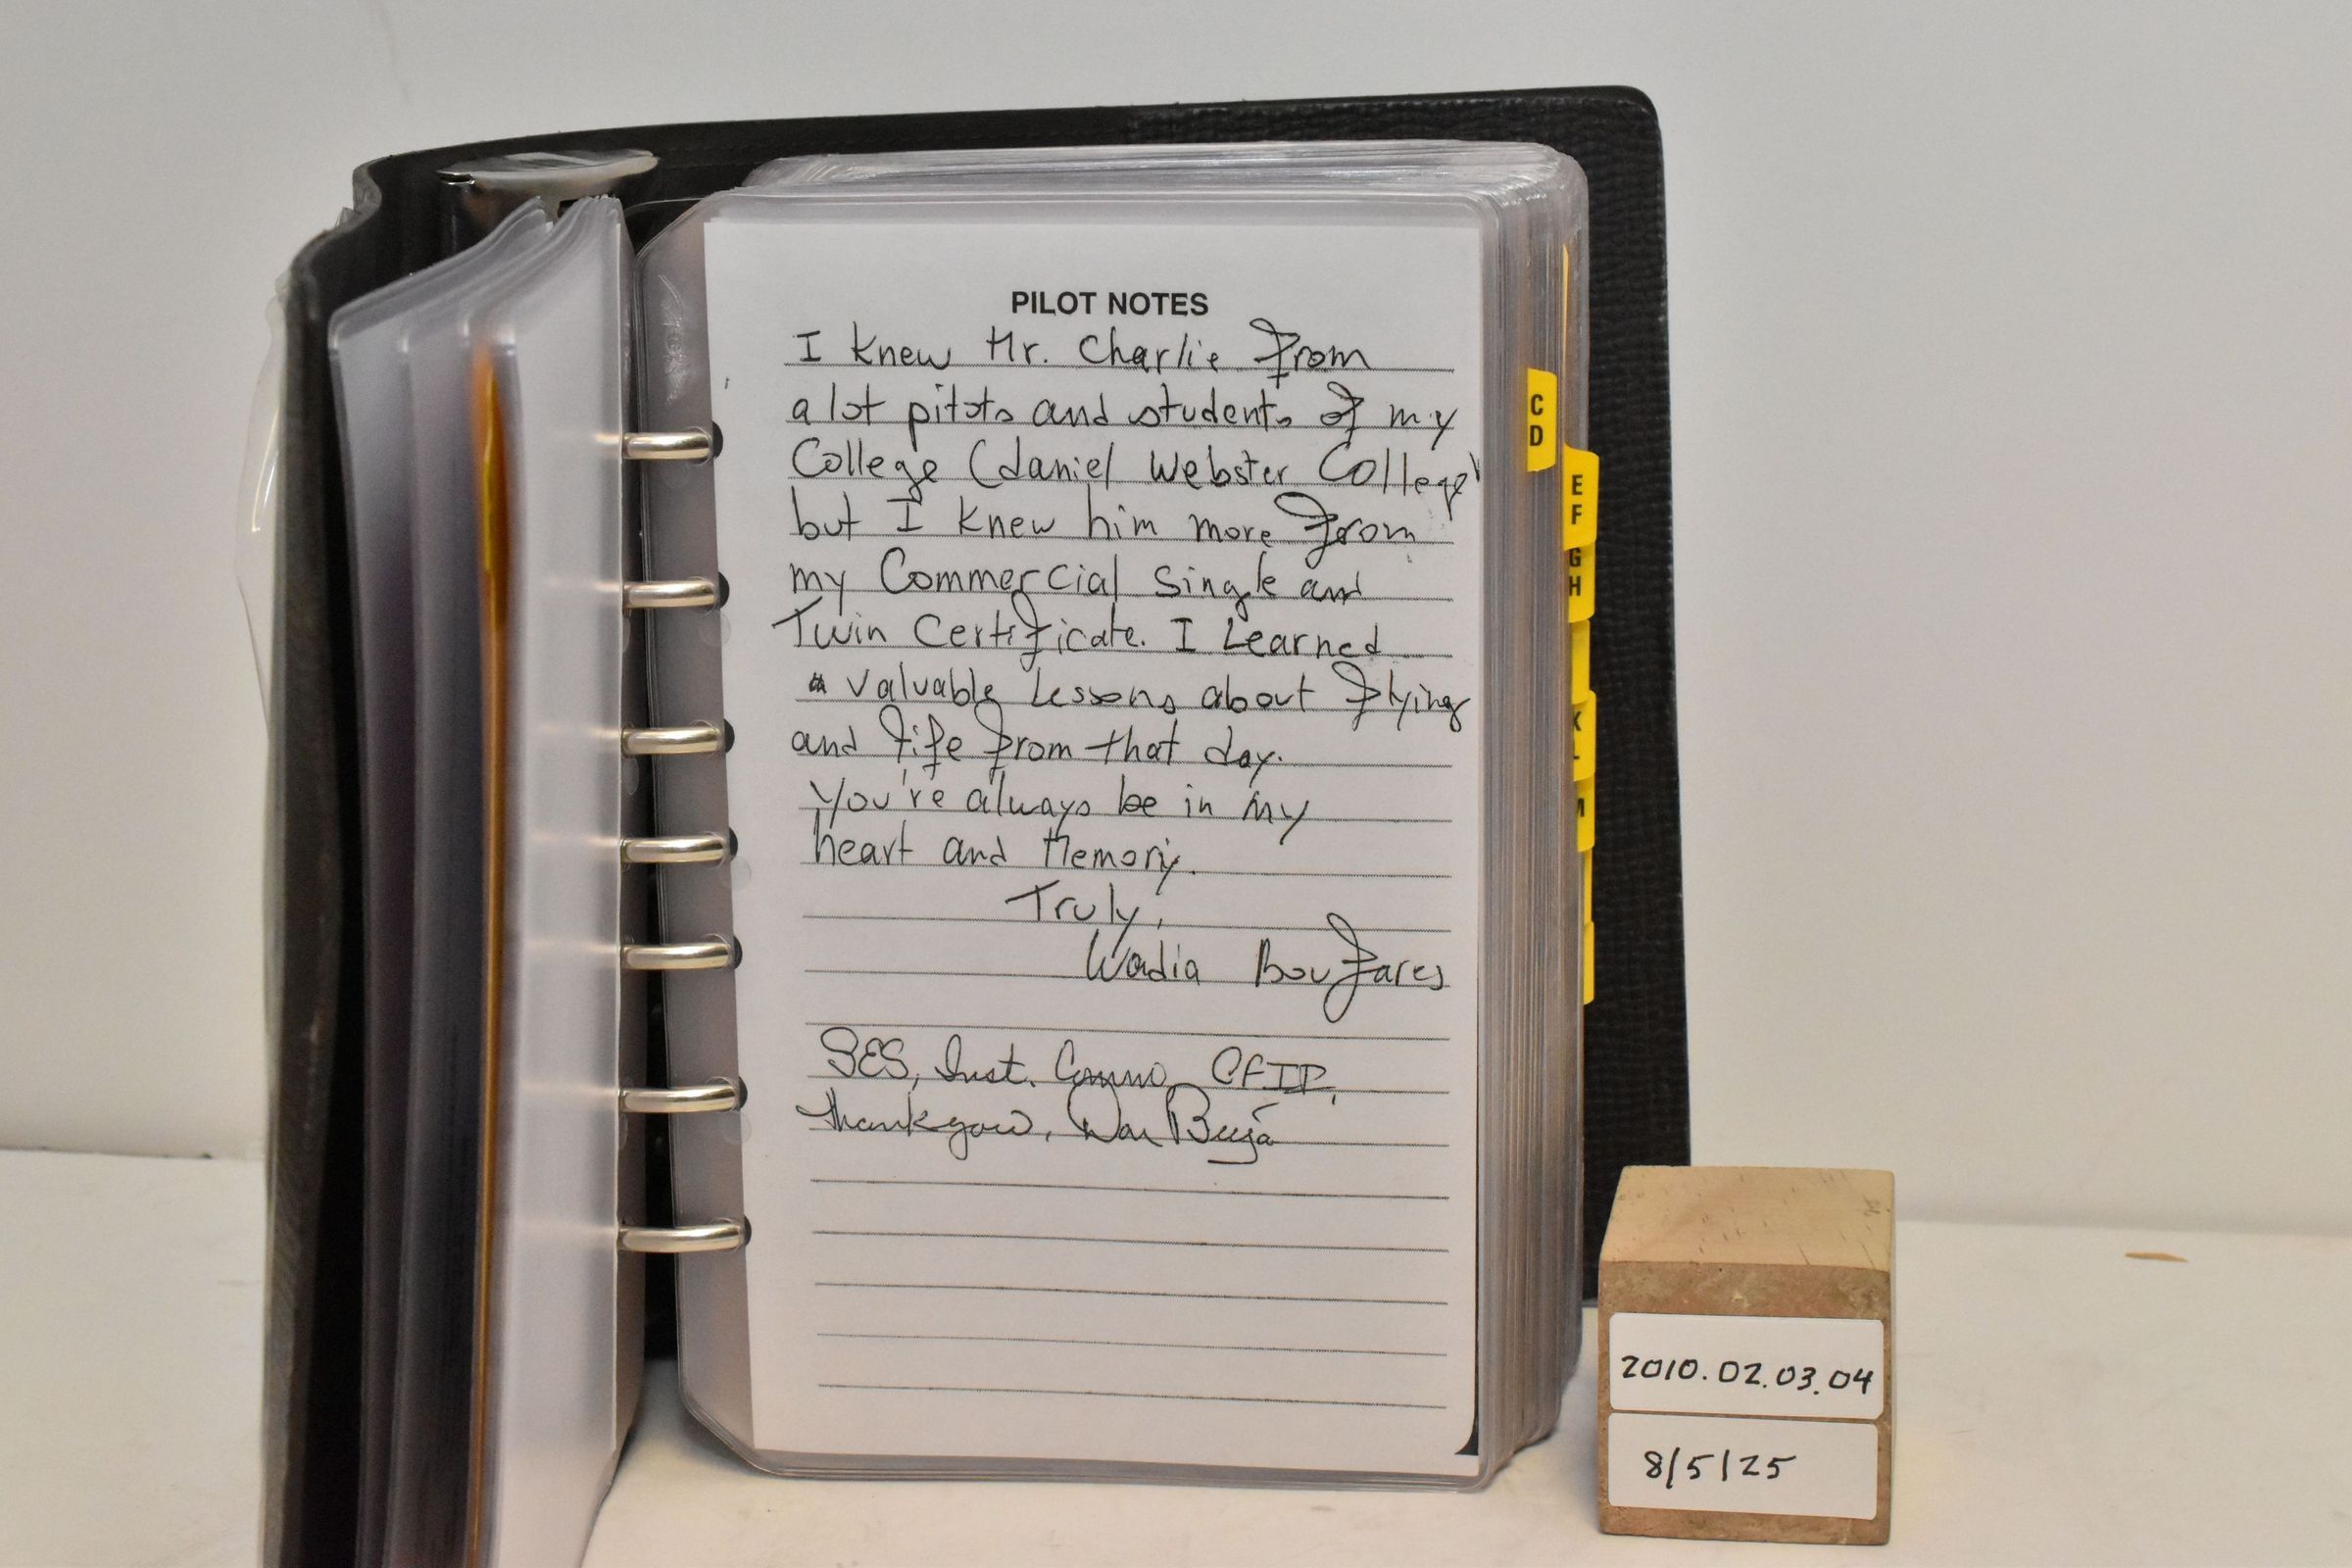 PILOT NOTES
I knew Mr. Charlie from
a lot pilots and students of my
College (daniel Webster College)
but I knew him more from
my Commercial Single and
Twin Certificate. I Learned
valuable Lessons about flying
and life from that day.
You're always be in my
heart and Memory.
Truly,
Wadia Bou Fares
SES, Inst. Comm. CFII,
Thank you, Dan
C
D
E
F
G
H
K
L
M
2010.02.03.04
8/5/25